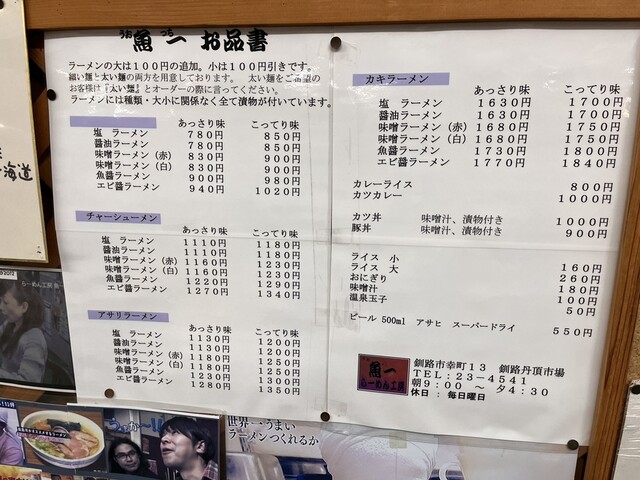 うおっち
魚一 お品書
ラーメンの大は100円の追加。小は100円引きです。
細い麺と太い麺の両方を用意しております。 太い麺をご希望の
お客様は『太い麺』とオーダーの際に言ってください。
ラーメンには種類・大小に関係なく全て漬物が付いています。
あっさり味 こってり味
塩 ラーメン 780円 850円
醤油ラーメン 780円 850円
味噌ラーメン(赤) 830円 900円
味噌ラーメン(白) 830円 900円
魚醤ラーメン 900円 980円
エビ醤ラーメン 940円 1020円
チャーシューメン
あっさり味 こってり味
塩 ラーメン 1110円 1180円
醤油ラーメン 1110円 1180円
味噌ラーメン(赤) 1160円 1230円
味噌ラーメン(白) 1160円 1230円
魚醤ラーメン 1220円 1290円
エビ醤ラーメン 1270円 1340円
アサリラーメン
あっさり味 こってり味
塩 ラーメン 1130円 1200円
醤油ラーメン 1130円 1200円
味噌ラーメン(赤) 1180円 1250円
味噌ラーメン(白) 1180円 1250円
魚醤ラーメン 1230円 1300円
エビ醤ラーメン 1280円 1350円
カキラーメン
あっさり味 こってり味
塩 ラーメン 1630円 1700円
醤油ラーメン 1630円 1700円
味噌ラーメン(赤) 1680円 1750円
味噌ラーメン(白) 1680円 1750円
魚醤ラーメン 1730円 1800円
エビ醤ラーメン 1770円 1840円
カレーライス 800円
カツカレー 1000円
カツ丼 味噌汁、漬物付き 1000円
豚丼 味噌汁、漬物付き 900円
ライス 小 160円
ライス 大 260円
おにぎり 180円
味噌汁 100円
温泉玉子 50円
ビール 500ml アサヒ スーパードライ 550円
魚一
らーめん工房
釧路市幸町13 釧路丹頂市場
TEL:23-4541
朝9:00 ~ 夕4:30
休日 : 毎日曜日
海道
らーめん工房 魚
世界一うまい
ラーメンつくれるか